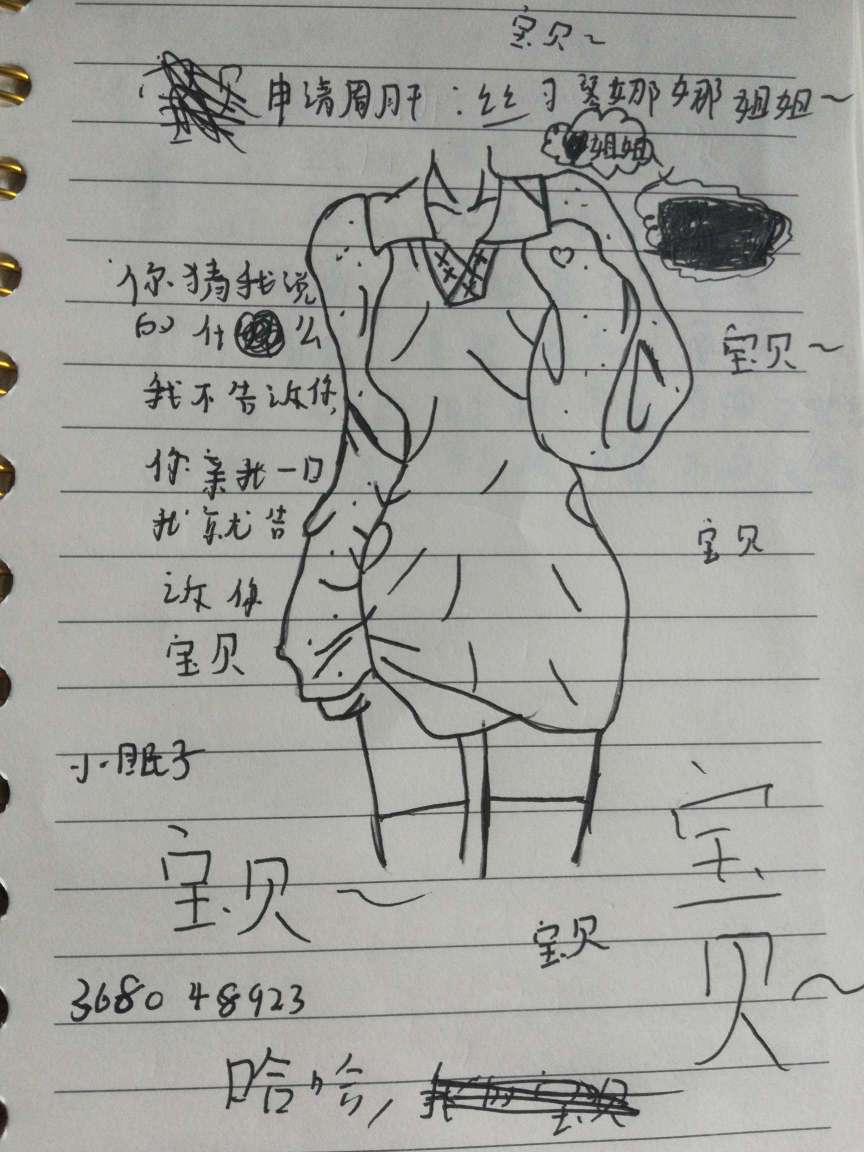 宝贝~
申请周肝:丝习琴娜娜姐姐~
姐姐
你猜我说
的什么
我不告诉你,
你亲我一口
我就告
诉你
宝贝
宝贝~
宝贝
小眠子
宝贝~
宝贝~
宝贝
3680 48923
哈哈,